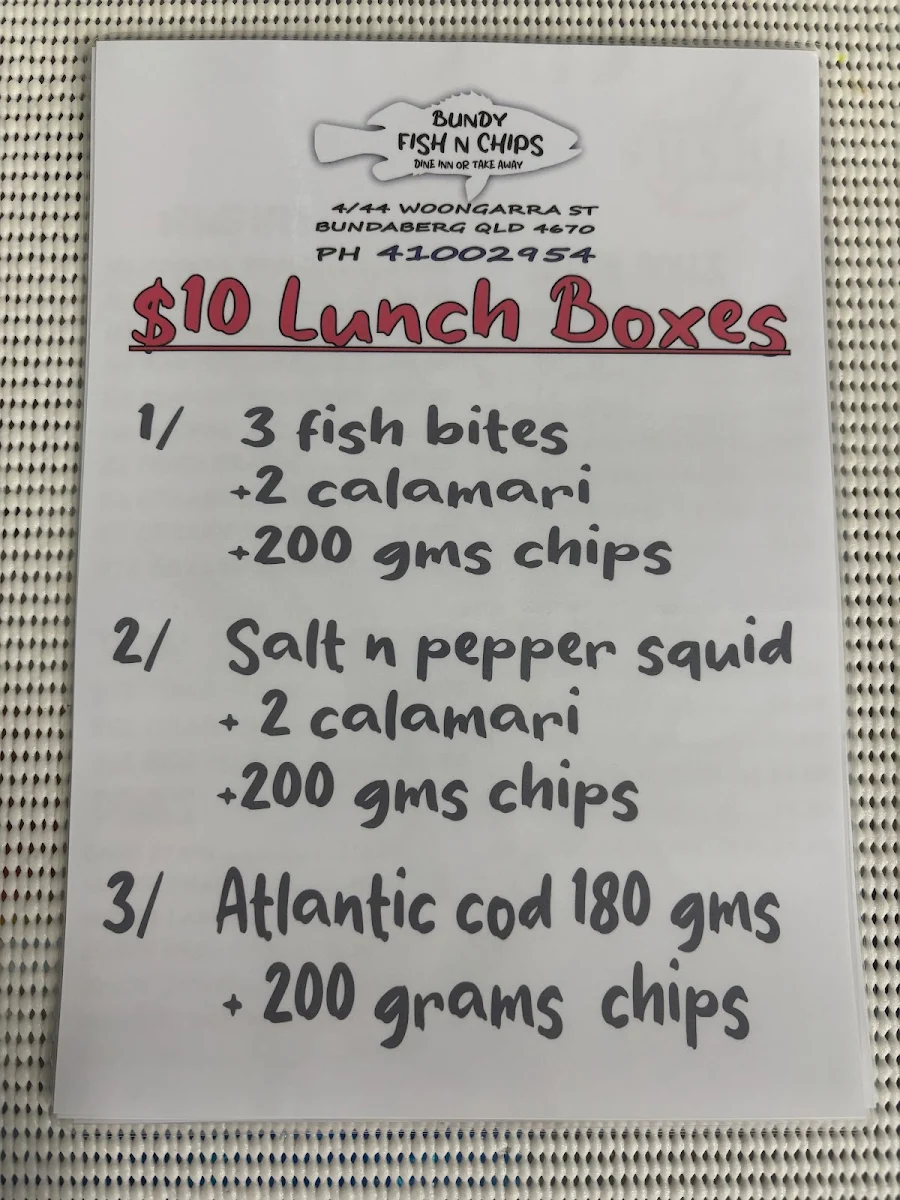 BUNDY
FISH N CHIPS
DINE INN OR TAKE AWAY
4/44 WOONGARRA ST
BUNDABERG QLD 4670
PH 41002954
$10 Lunch Boxes
1/ 3 fish bites
+2 calamari
+200 gms chips
2/ Salt n pepper squid
+ 2 calamari
+200 gms chips
3/ Atlantic cod 180 gms
+ 200 grams chips